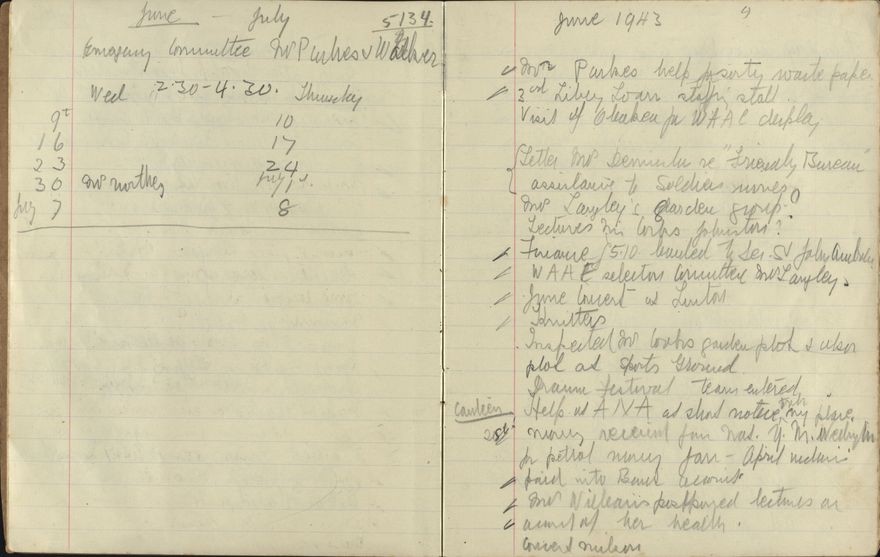 June - July
5134.
Emergency Committee Mrs Parkes & Walker
Wed 2.30-4.30. Thursday
9th 10
16 17
23 24
30 Mrs July 1st
July 7 8
June 1943
9
Mrs Parkes help sorty waste paper
3rd Liberty Loan staffing stall
Visit of for WAAC display
Letter Mrs re "Friendly Bureau"
assistance to Soldiers wives?
Mrs Langley's garden group?
Lectures Mrs Johnston?
Finance £510 handed to Sec. St John Ambul
WAAC selection Committee Mrs Langley.
June Concert at Linton
Knitters
Inspected Mrs garden plot & also
plot at Sports Ground.
Drama festival team entered
Canteen Help at ANA at short notice my place.
money received from Nat.
for petrol money Jan - April
paid into Bank account
Mrs postponed lectures on
account of her health.
Concert